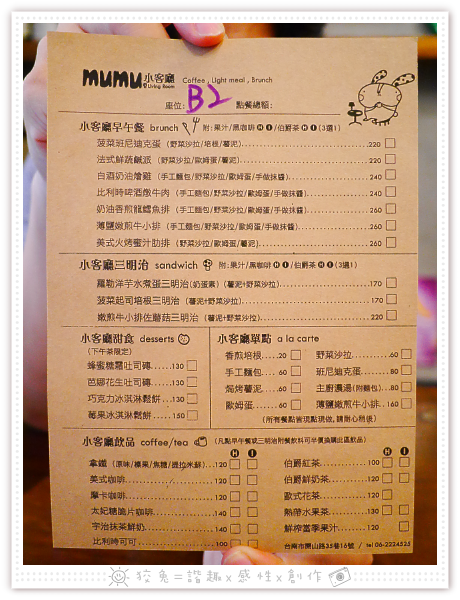 mumu 小客廳 Living Room Coffee , Light meal , Brunch
座位: B2 點餐總額:
小客廳早午餐 brunch 附:果汁/黑咖啡 H I /伯爵茶 H I (3選1)
菠菜班尼迪克蛋 (野菜沙拉/培根/薯泥)...220
法式鮮蔬鹹派 (野菜沙拉/歐姆蛋/薯泥)...220
白酒奶油燴雞 (手工麵包/野菜沙拉/歐姆蛋/手做抹醬)...240
比利時啤酒燉牛肉 (手工麵包/野菜沙拉/歐姆蛋/手做抹醬)...240
奶油香煎龍鱈魚排 (手工麵包/野菜沙拉/歐姆蛋/手做抹醬)...260
薄鹽嫩煎牛小排 (手工麵包/野菜沙拉/歐姆蛋/手做抹醬)...260
美式火烤蜜汁肋排 (野菜沙拉/歐姆蛋/薯泥)...260
小客廳三明治 sandwich 附:果汁/黑咖啡 H I /伯爵茶 H I (3選1)
羅勒洋芋水煮蛋三明治(奶蛋素) (薯泥+野菜沙拉)...170
菠菜起司培根三明治 (薯泥+野菜沙拉)...170
嫩煎牛小排佐蘑菇三明治 (薯泥+野菜沙拉)...220
小客廳甜食 desserts
(下午茶限定)
蜂蜜糖霜吐司磚......130
芭娜花生吐司磚......130
巧克力冰淇淋鬆餅...130
莓果冰淇淋鬆餅......150
小客廳單點 a la carte
香煎培根.....20 野菜沙拉.........60
手工麵包.....60 班尼迪克蛋.......80
焗烤薯泥.....60 主廚濃湯(附麵包)...80
歐姆蛋........60 薄鹽嫩煎牛小排..160
(所有餐點皆現點現做,請耐心稍後)
小客廳飲品 coffee/tea (凡點早午餐或三明治附餐飲料可半價換購此區飲品)
H I
拿鐵 (原味/榛果/焦糖/提拉米穌)...120
美式咖啡...120
摩卡咖啡...120
太妃糖脆片咖啡...140
宇治抹茶鮮奶...140
比利時可可...100
H I
伯爵紅茶...100
伯爵鮮奶茶...120
歐式花茶...120
熱帶水果茶...130
鮮榨當季果汁...120
台南市開山路35巷16號 / tel 06-2224525
狡兔=諧趣x感性x創作